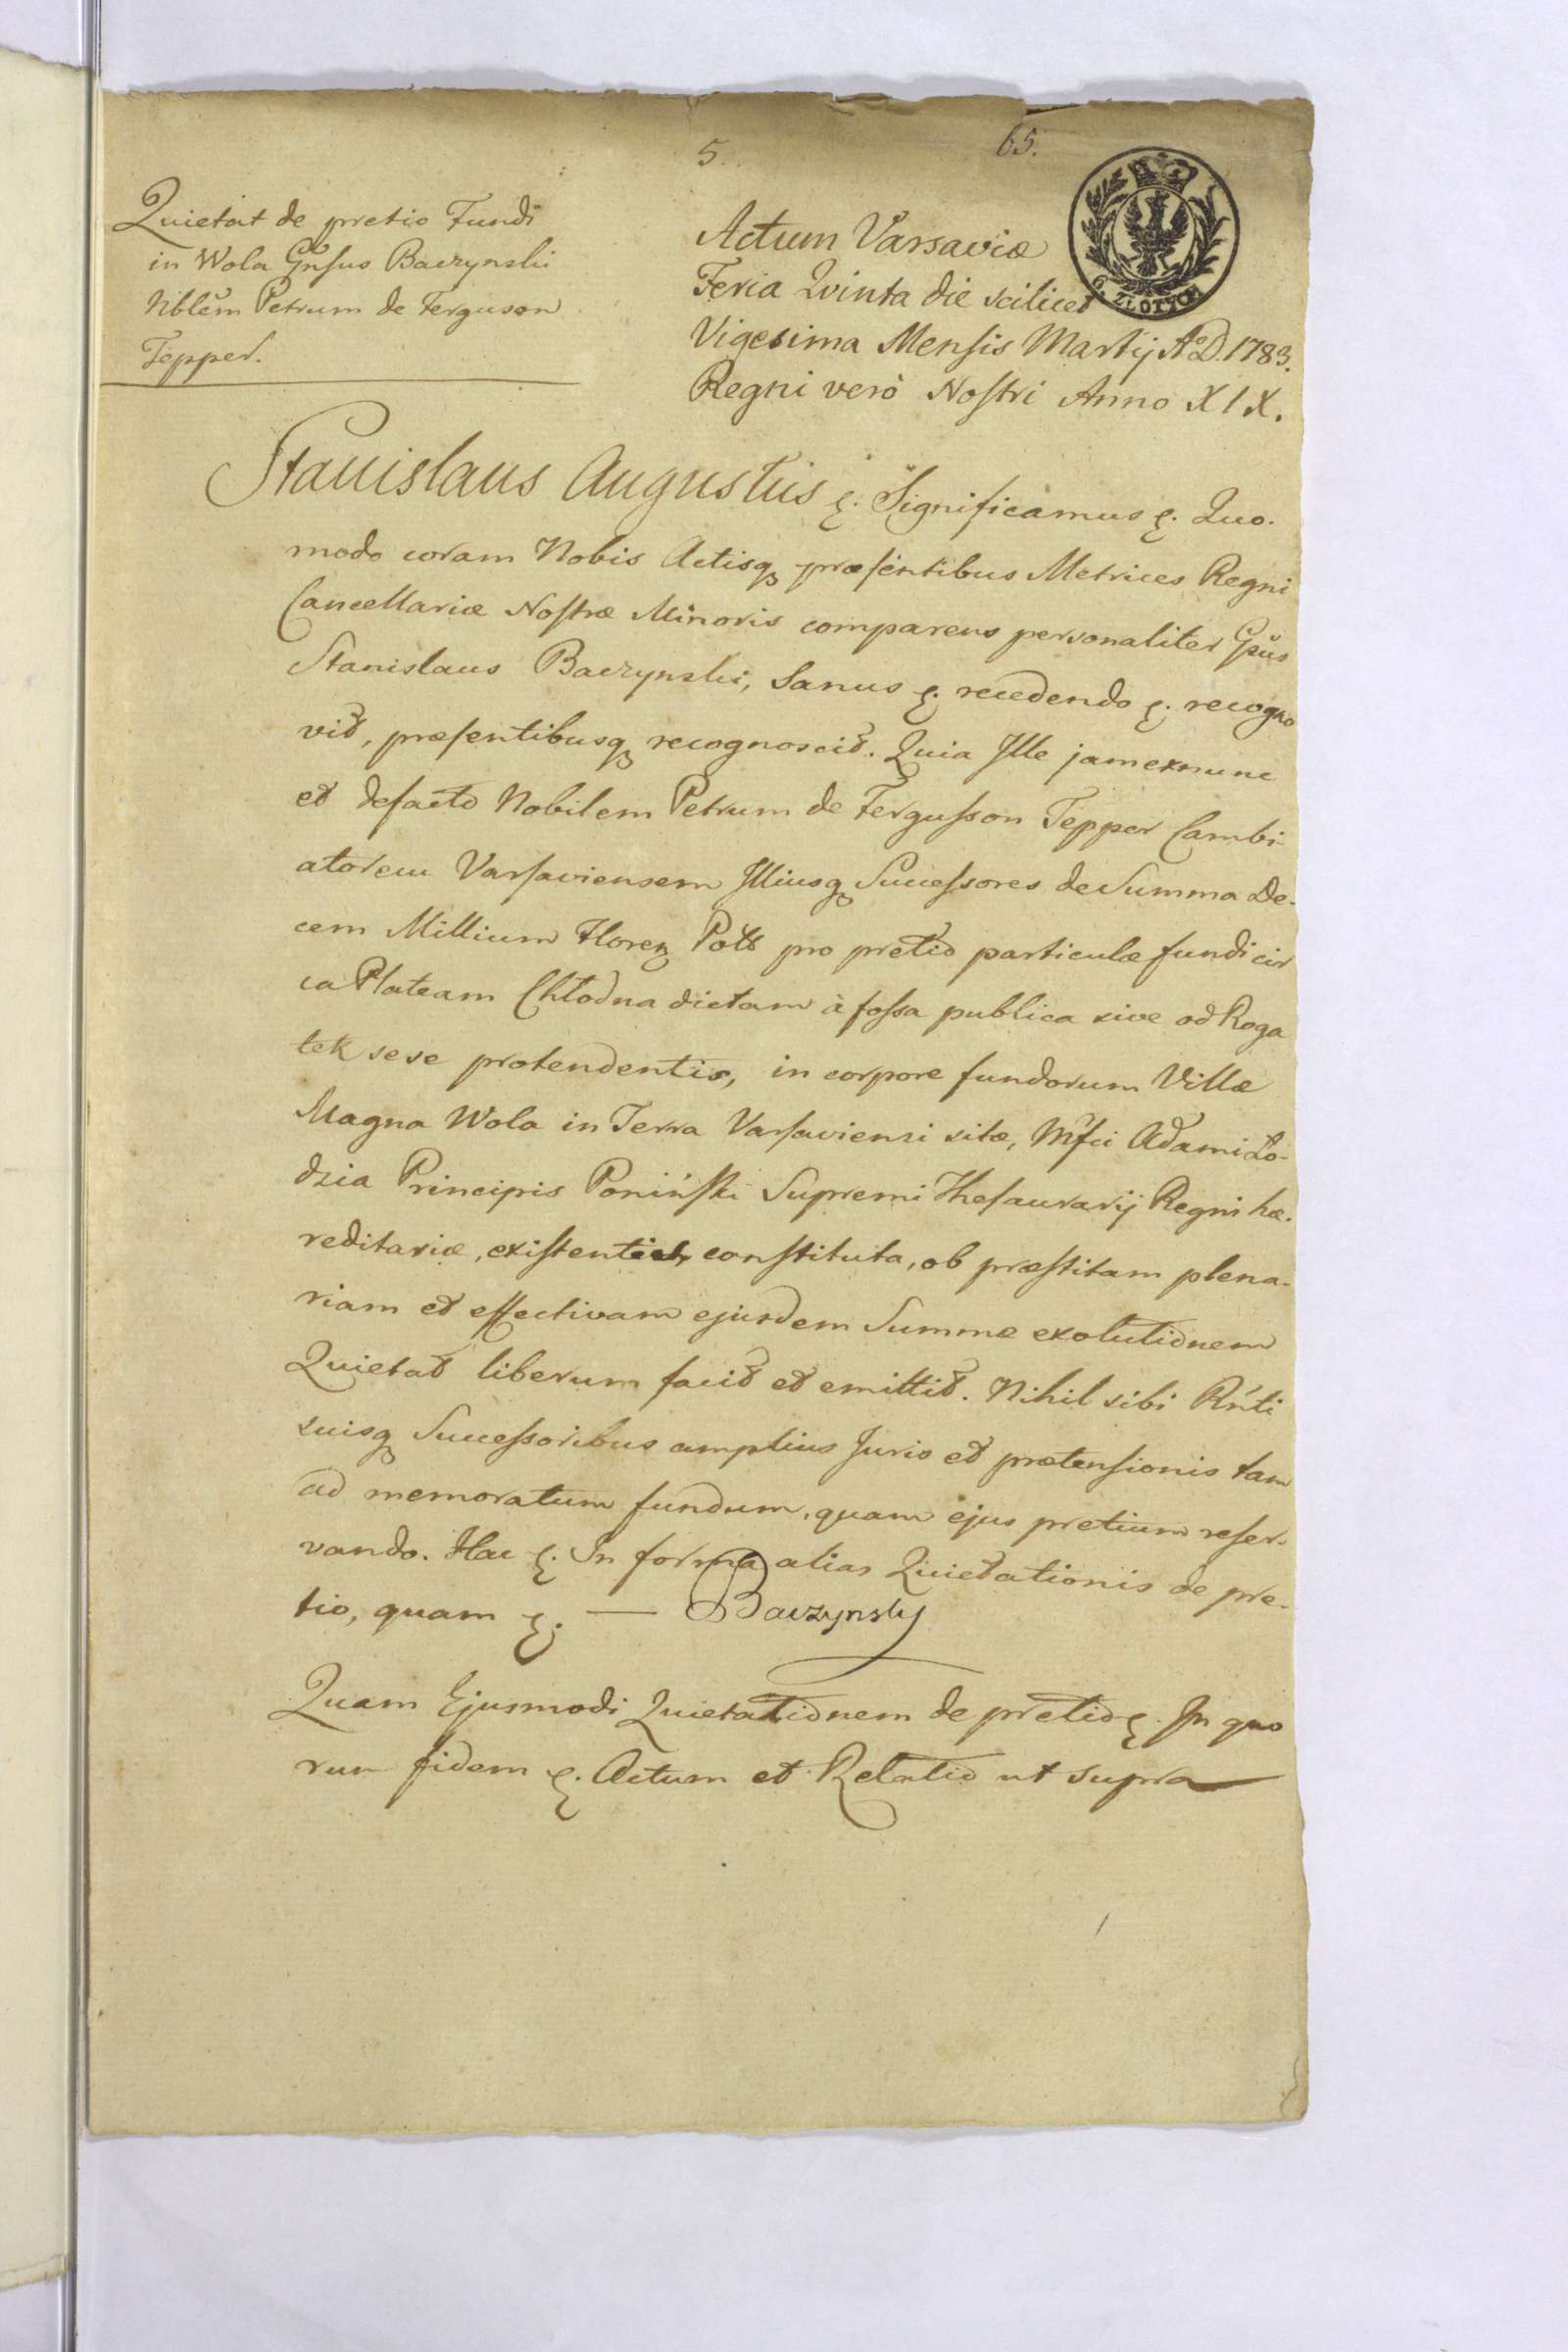 5.
65.
Quietat de pretio Fundi
in Wola Gnsus Baczynski
Nblem Petrum de Ferguson
Tepper.
6. ZŁOTYCH
Actum Varsaviæ
Feria Qvinta die scilicet
Vigesima Mensis Martij Aº D. 1783.
Regni verò Nostri Anno XIX.
Stanislaus Augustus &. Significamus &. Quo-
modo coram Nobis Actisq præsentibus Metrices Regni
Cancellariæ Nostræ Minoris comparens personaliter Gsus
Stanislaus Baczynski, Sanus &. recedendo &. recogno
vit, præsentibusq recognoscit. Quia Ille jam exnunc
et defacto Nobilem Petrum de Fergusson Tepper Cambi-
atorem Varsaviensem Illiusq Successores de Summa De-
cem Millium Floren Poll pro pretio particulæ fundi cir
ca Plateam Chłodna dictam à fossa publica sive od Roga
tek sese protendentis, in corpore fundorum Villæ
Magna Wola in Terra Varsaviensi sitæ, Mfci Adami Ło-
dzia Principis Poniński Supremi Thesaurarij Regni hæ-
reditariæ, existentis constituta, ob præstitam plena-
riam et effectivam ejusdem Summæ exolutionem
Quietat liberum facit et emittit. Nihil sibi Rnti
suisq Successoribus amplius Juris et prætensionis tam
ad memoratum fundum, quam ejus pretium reser-
vando. Hac &. In forma alias Quietationis de pre-
tio, quam &. — Baczynsky
Quam Ejusmodi Quietationem de pretio &. In quo
rum fidem &. Actum et Relatio ut supra